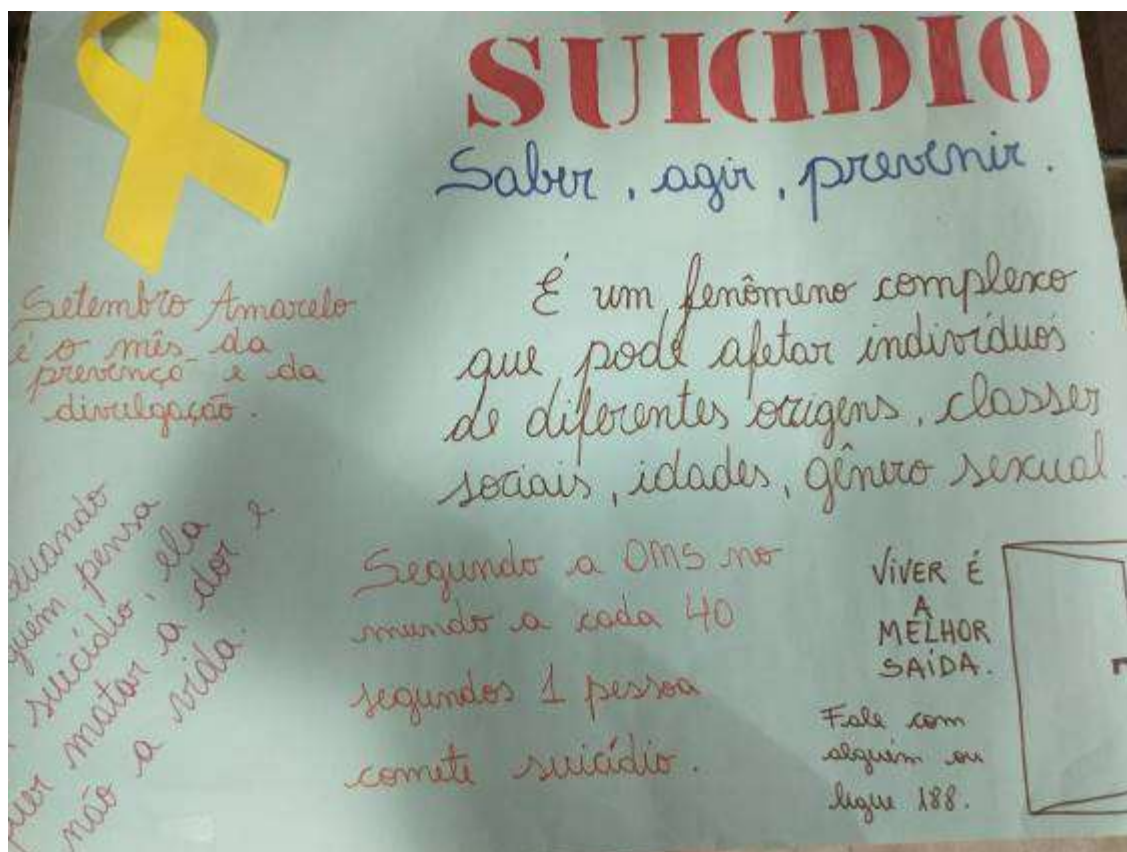 SUICÍDIO
Saber, agir, prevenir.
Setembro Amarelo
é o mês da
prevenço e da
divulgação.
É um fenômeno complexo
que pode afetar indivíduos
de diferentes origens, classes
sociais, idades, gênero sexual.
Quando
pensa
suicídio, ela
quer matar a dor e
não a vida.
Segundo a OMS no
mundo a cada 40
segundos 1 pessoa
comete suicídio.
VIVER É
A
MELHOR
SAÍDA.
Fale com
alguém ou
ligue 188.